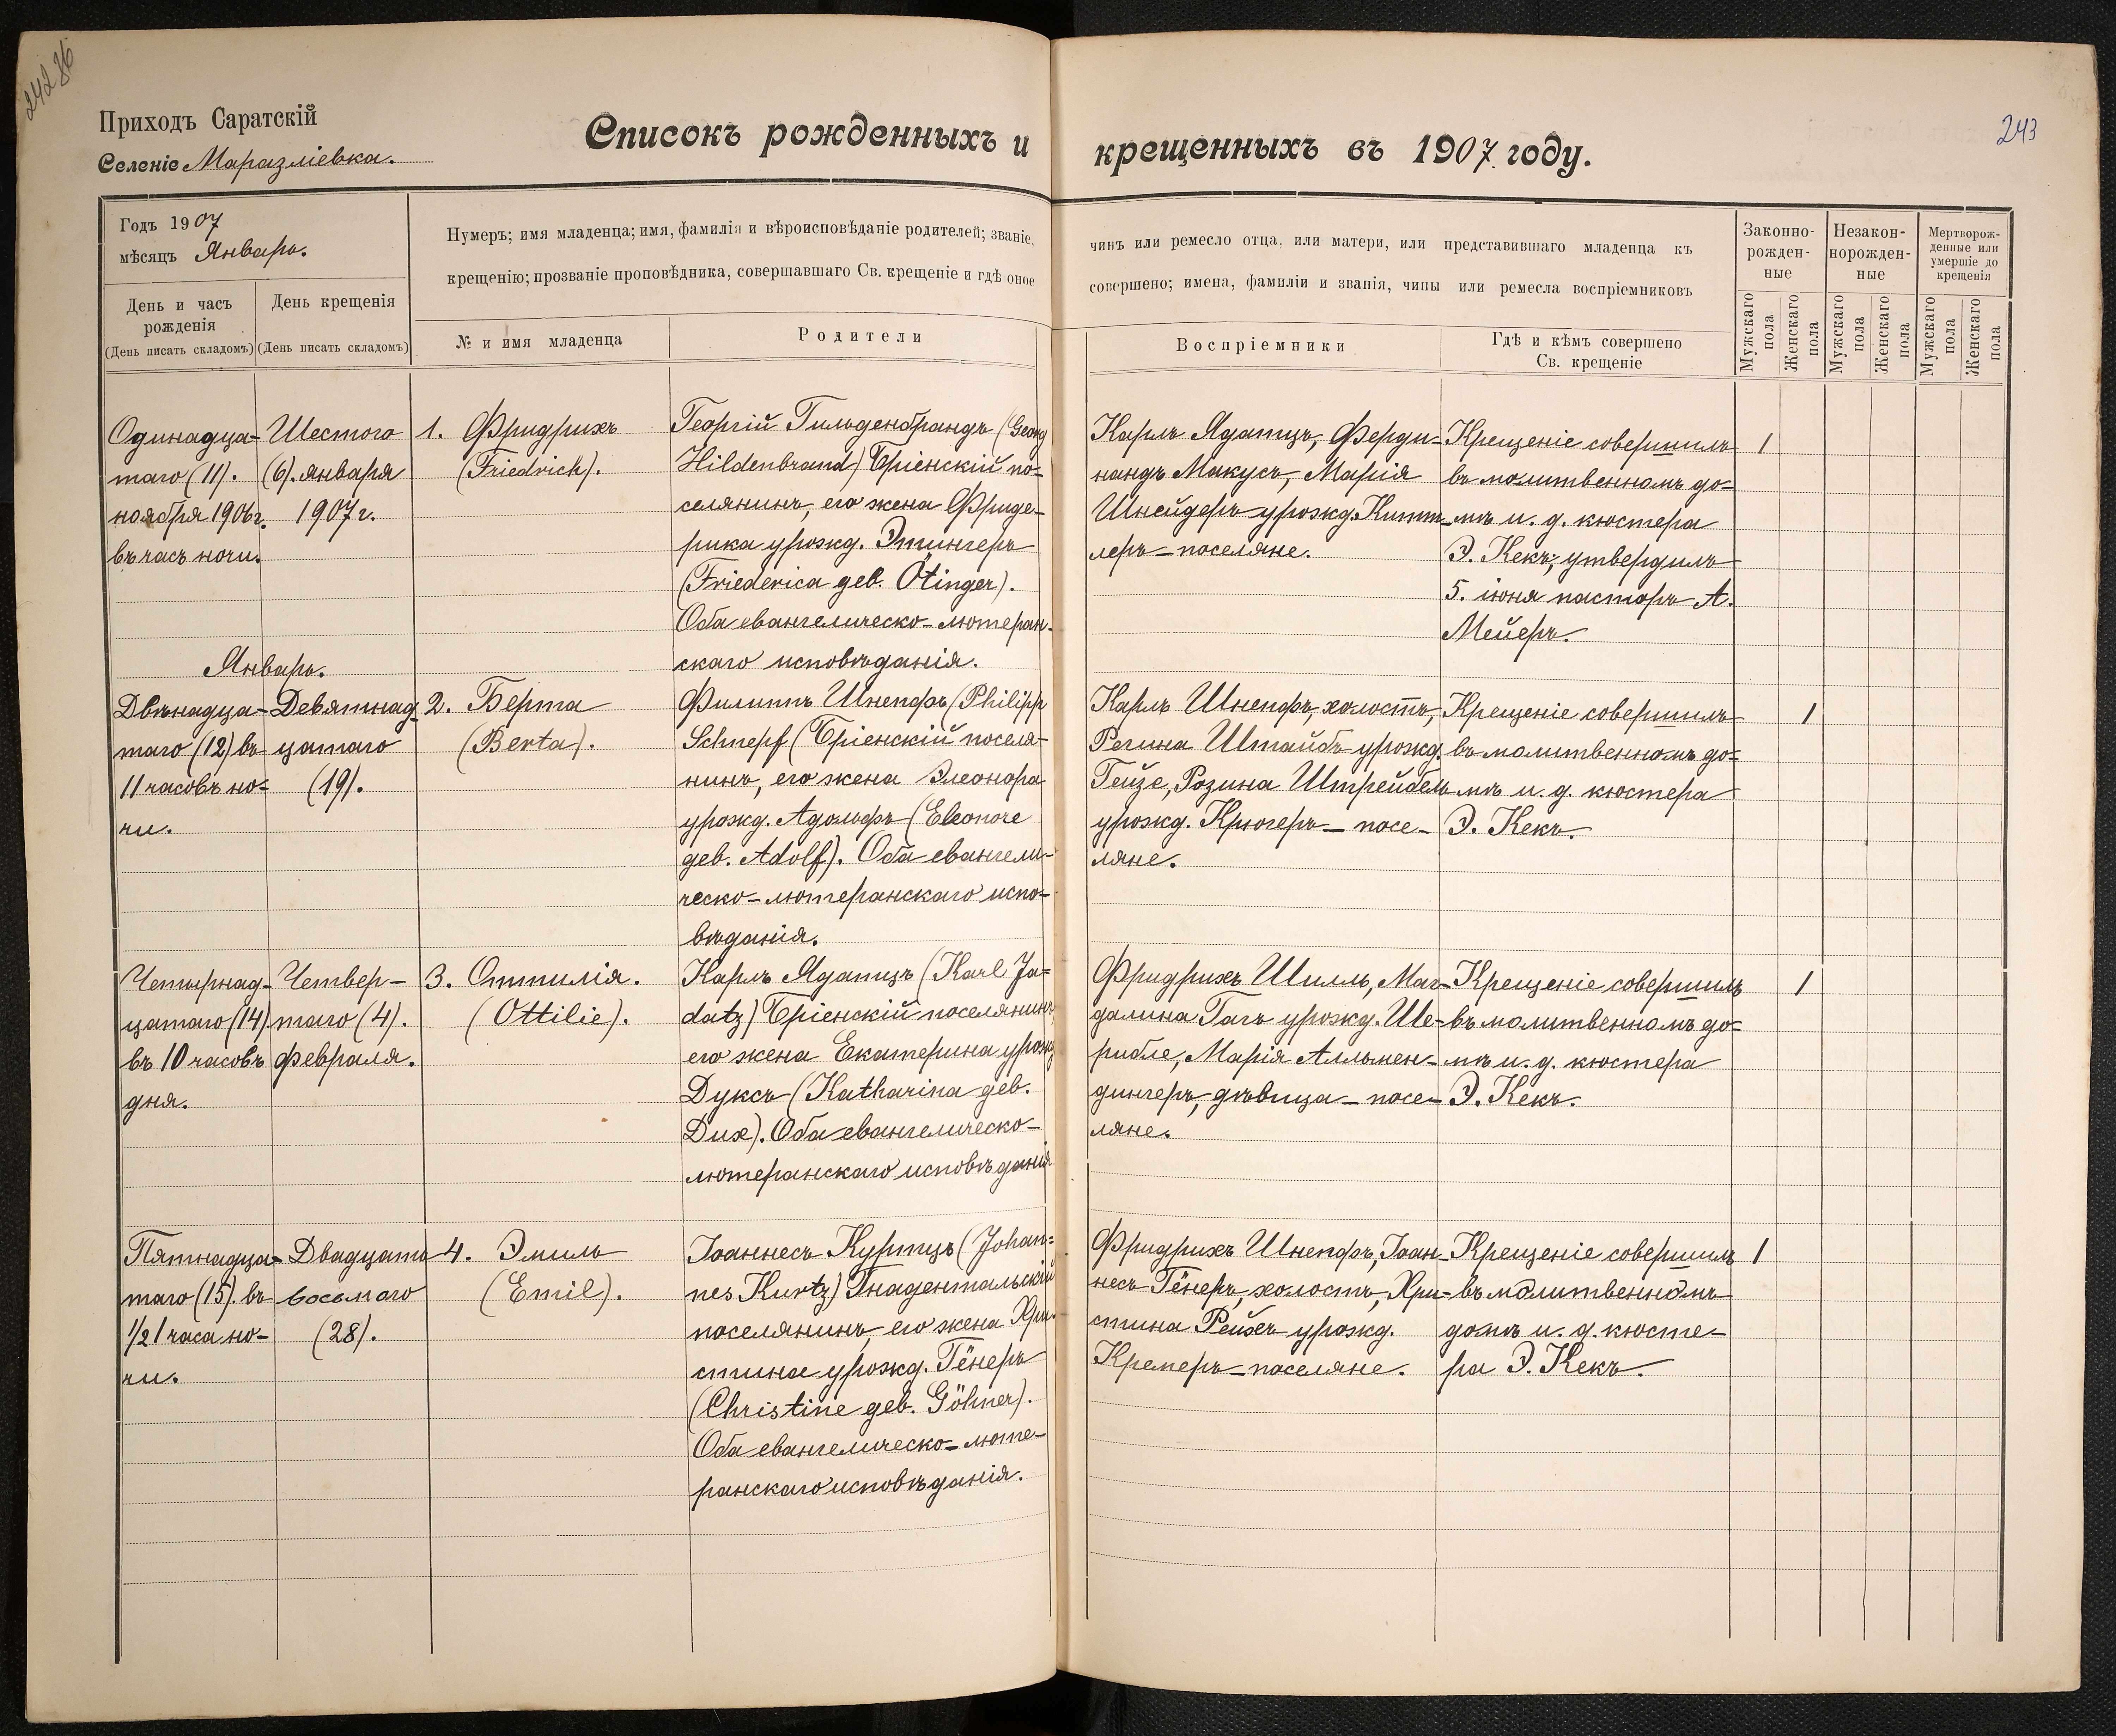 243
Приходъ Саратскій
Селеніе Маразліевка.
Списокъ рожденныхъ и крещенныхъ въ 1907 году.
Годъ 1907
мѣсяцъ Январь.
День и часъ
рожденія
(День писать складомъ)
День крещенія
(День писать складомъ)
Нумеръ; имя младенца; имя, фамилія и вѣроисповѣданіе родителей; званіе,
крещенію; прозваніе проповѣдника, совершавшаго Св. крещеніе и гдѣ оное
№ и имя младенца
Родители
чинъ или ремесло отца, или матери, или представившаго младенца къ
совершено; имена, фамиліи и званія, чины или ремесла воспріемниковъ
Воспріемники
Гдѣ и кѣмъ совершено
Св. крещеніе
Законно-
рожден-
ные
Незакон-
норожден-
ные
Мертворож-
денные или
умершіе до
крещенія
Мужскаго
пола
Женскаго
пола
Мужскаго
пола
Женскаго
пола
Мужскаго
пола
Женскаго
пола
Одинадца-
таго (11).
ноября 1906 г.
въ часъ ночи.
Шестого
(6). января
1907 г.
1. Фридрихъ
(Friedrich).
Георгій Гильденбрандъ (Georg
Hildenbrand) Бріенскій по-
селянинъ, его жена Фриде-
рика урожд. Этингеръ
(Friederica geb. Ötinger).
Оба евангелическо-лютеран-
скаго исповѣданія.
Карлъ Ядатцъ, Ферди-
нандъ Макусъ, Марія
Шнейдеръ урожд. Китт-
леръ - поселяне.
Крещеніе совершилъ
въ молитвенномъ до-
мѣ и. д. кюстера
Э. Кекъ, утвердилъ
5. іюня пасторъ А.
Мейеръ.
1
Январь.
Двѣнадца-
таго (12) въ
11 часовъ но-
чи.
Девятнад-
цатаго
(19).
2. Берта
(Berta).
Филиппъ Шнепфъ (Philipp
Schnepf (Бріенскій поселя-
нинъ, его жена Элеонора
урожд. Адольфъ (Eleonore
geb. Adolf). Оба евангели-
ческо-лютеранскаго испо-
вѣданія.
Карлъ Шнепфъ, холостъ,
Регина Штайбъ урожд.
Гейзе, Розина Штрейбель
урожд. Крюгеръ - посе-
ляне.
Крещеніе совершилъ
въ молитвенномъ до-
мѣ и. д. кюстера
Э. Кекъ.
1
Четырнад-
цатаго (14).
въ 10 часовъ
дня.
Четвер-
таго (4).
февраля.
3. Оттилія.
(Ottilie).
Карлъ Ядатцъ (Karl Ja-
datz) Бріенскій поселянинъ,
его жена Екатерина урожд
Дуксъ (Katharina geb.
Dux). Оба евангелическо-
лютеранскаго исповѣданія.
Фридрихъ Шилль, Маг-
далина Гагъ урожд. Ше-
рибле, Марія Алльмен-
дингеръ, дѣвица - посе-
ляне.
Крещеніе совершилъ
въ молитвенномъ до-
мѣ и. д. кюстера
Э. Кекъ.
1
Пятнадца-
таго (15). въ
1/2 1 часа но-
чи.
Двадцать
восьмого
(28).
4. Эмиль
(Emil).
Іоаннесъ Куртцъ (Johan-
nes Kurtz) Гнаденталькій
поселянинъ, его жена Хри-
стина урожд. Гёнеръ
(Christine geb. Göhner).
Оба евангелическо-люте-
ранскаго исповѣданія.
Фридрихъ Шнепфъ, Іоан-
несъ Гёнеръ, холостъ, Хри-
стина Рейхъ урожд.
Кремеръ - поселяне.
Крещеніе совершилъ
въ молитвенномъ
домѣ и. д. кюсте-
ра Э. Кекъ.
1